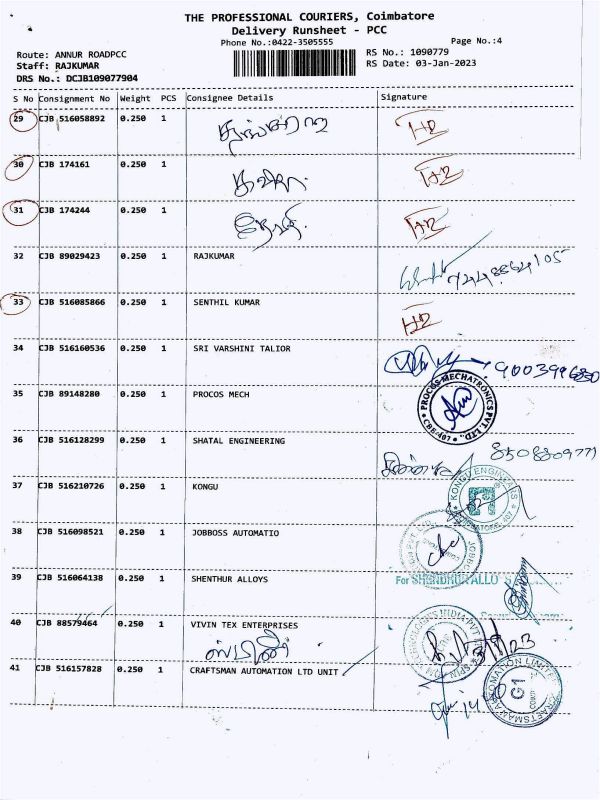 THE PROFESSIONAL COURIERS, Coimbatore
Delivery Runsheet - PCC
Phone No.:0422-3505555
Page No.:4
Route: ANNUR ROADPCC
RS No.: 1090779
Staff: RAJKUMAR
RS Date: 03-Jan-2023
DRS No.: DCJB109077904
S No Consignment No Weight PCS Consignee Details Signature
29 CJB 516058892 0.250 1
30 CJB 174161 0.250 1
31 CJB 174244 0.250 1
32 CJB 89029423 0.250 1 RAJKUMAR
33 CJB 516085866 0.250 1 SENTHIL KUMAR
34 CJB 516160536 0.250 1 SRI VARSHINI TALIOR
35 CJB 89148280 0.250 1 PROCOS MECH
PROCOS MECHATRONICS PVT. LTD.,
36 CJB 516128299 0.250 1 SHATAL ENGINEERING
8508809771
37 CJB 516210726 0.250 1 KONGU
38 CJB 516098521 0.250 1 JOBBOSS AUTOMATIO
39 CJB 516064138 0.250 1 SHENTHUR ALLOYS
For
40 CJB 88579464 0.250 1 VIVIN TEX ENTERPRISES
41 CJB 516157828 0.250 1 CRAFTSMAN AUTOMATION LTD UNIT
G1